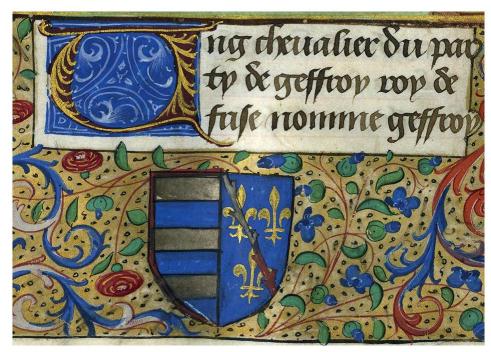 Vng cheualier du par
ty de geffroy roy de
frise nomme geffroy